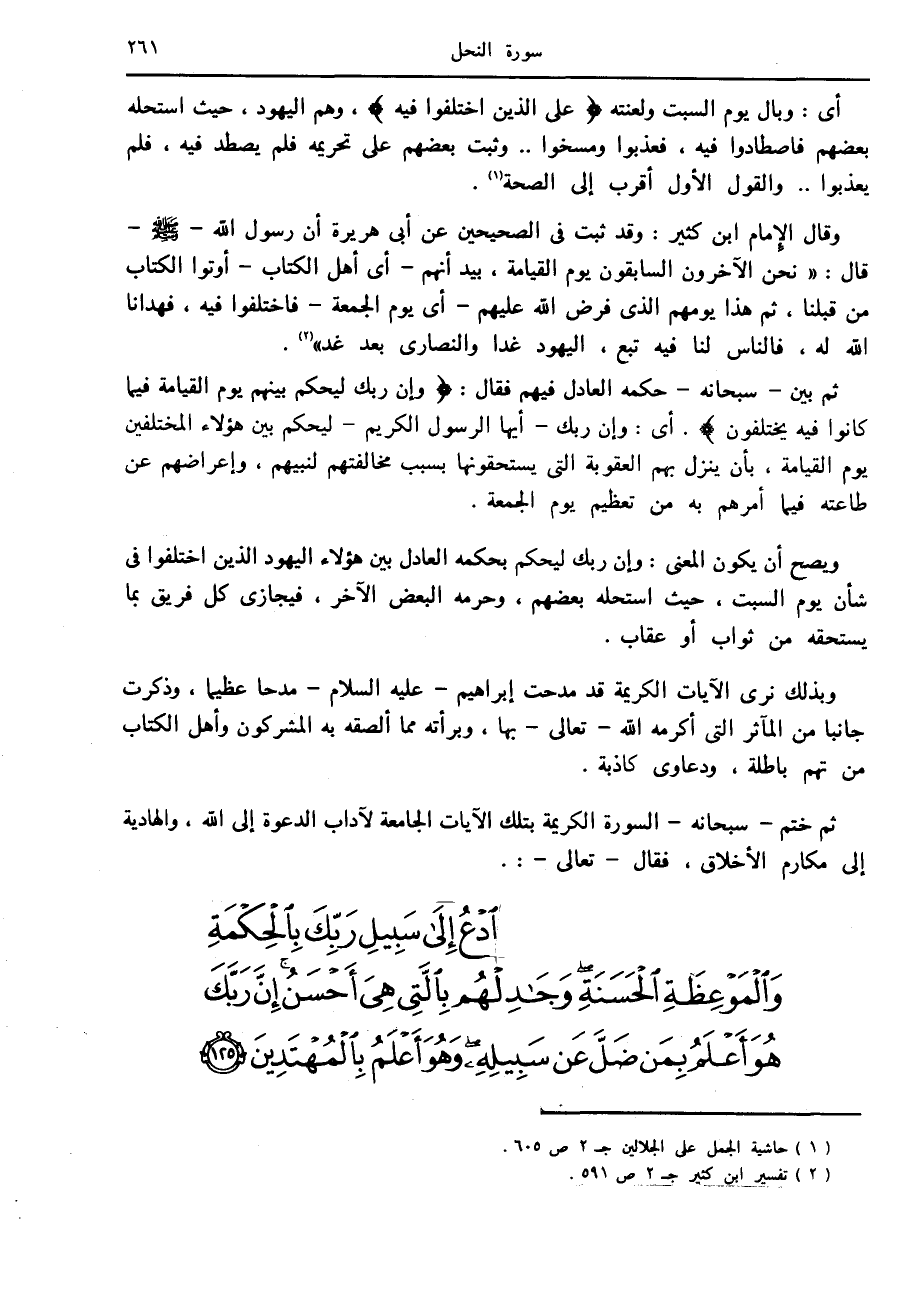 سورة النحل ٢٦١
أى : وبال يوم السبت ولعنته ﴿ على الذين اختلفوا فيه ﴾ ، وهم اليهود ، حيث استحله
بعضهم فاصطادوا فيه ، فعذبوا ومسخوا .. وثبت بعضهم على تحريمه فلم يصطد فيه ، فلم
يعذبوا .. والقول الأول أقرب إلى الصحة(١) .
وقال الإمام ابن كثير : وقد ثبت فى الصحيحين عن أبى هريرة أن رسول الله – ﷺ –
قال : « نحن الآخرون السابقون يوم القيامة ، بيد أنهم – أى أهل الكتاب – أوتوا الكتاب
من قبلنا ، ثم هذا يومهم الذى فرض الله عليهم – أى يوم الجمعة – فاختلفوا فيه ، فهدانا
الله له ، فالناس لنا فيه تبع ، اليهود غدا والنصارى بعد غد»(٢) .
ثم بين – سبحانه – حكمه العادل فيهم فقال : ﴿ وإن ربك ليحكم بينهم يوم القيامة فيما
كانوا فيه يختلفون ﴾ . أى : وإن ربك – أيها الرسول الكريم – ليحكم بين هؤلاء المختلفين
يوم القيامة ، بأن ينزل بهم العقوبة التى يستحقونها بسبب مخالفتهم لنبيهم ، وإعراضهم عن
طاعته فيما أمرهم به من تعظيم يوم الجمعة .
ويصح أن يكون المعنى : وإن ربك ليحكم بحكمه العادل بين هؤلاء اليهود الذين اختلفوا فى
شأن يوم السبت ، حيث استحله بعضهم ، وحرمه البعض الآخر ، فيجازى كل فريق بما
يستحقه من ثواب أو عقاب .
وبذلك نرى الآيات الكريمة قد مدحت إبراهيم – عليه السلام – مدحا عظيما ، وذكرت
جانبا من المآثر التى أكرمه الله – تعالى – بها ، وبرأته مما ألصقه به المشركون وأهل الكتاب
من تهم باطلة ، ودعاوى كاذبة .
ثم ختم – سبحانه – السورة الكريمة بتلك الآيات الجامعة لآداب الدعوة إلى الله ، والهادية
إلى مكارم الأخلاق ، فقال – تعالى – : .
ٱدْعُ إِلَىٰ سَبِيلِ رَبِّكَ بِٱلْحِكْمَةِ
وَٱلْمَوْعِظَةِ ٱلْحَسَنَةِ ۖ وَجَٰدِلْهُم بِٱلَّتِى هِىَ أَحْسَنُ ۚ إِنَّ رَبَّكَ
هُوَ أَعْلَمُ بِمَن ضَلَّ عَن سَبِيلِهِۦ ۖ وَهُوَ أَعْلَمُ بِٱلْمُهْتَدِينَ ١٢٥
( ١ ) حاشية الجمل على الجلالين جـ ٢ ص ٦٠٥ .
( ٢ ) تفسير ابن كثير جـ ٢ ص ٥٩١ .